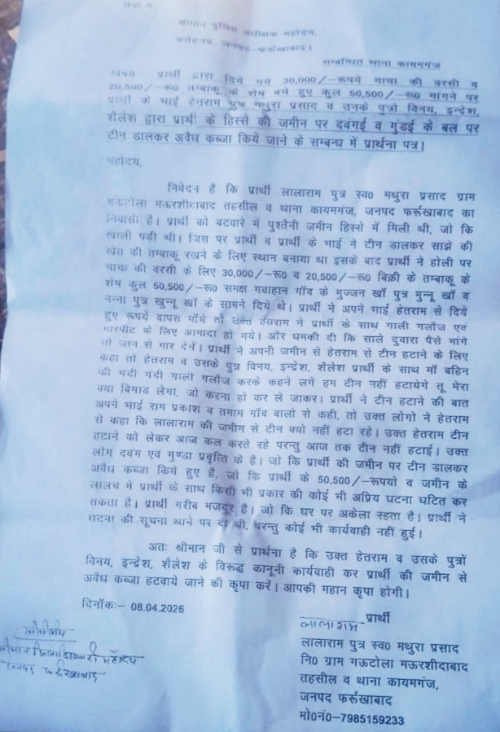 सेवा में,
श्रीमान पुलिस अधीक्षक महोदय,
फतेहगढ़, जनपद-फर्रूखाबाद।
सम्बन्धित थाना कायमगंज
विषय- प्रार्थी द्वारा दिये गये 30,000/-रूपये चाचा की वरसी व
20,500/-रू0 तम्बाकू के शेष बचे हुए कुल 50,500/-रू0 मांगने पर
प्रार्थी के भाई हेतराम पुत्र मथुरा प्रसाद व उनके पुत्रो विनय, इन्द्रेश,
शैलेश द्वारा प्रार्थी के हिस्से की जमीन पर दवंगई व गुंडई के बल पर
टीन डालकर अवैध कब्जा किये जाने के सम्बन्ध में प्रार्थना पत्र।
महोदय,
निवेदन है कि प्रार्थी लालाराम पुत्र स्व0 मथुरा प्रसाद ग्राम
गऊटोला मऊरशीदाबाद तहसील व थाना कायमगंज, जनपद फर्रूखाबाद का
निवासी है। प्रार्थी को बटवारे में पुश्तैनी जमीन हिस्से में मिली थी, जो कि
खाली पड़ी थी। जिस पर प्रार्थी व प्रार्थी के भाई ने टीन डालकर साझे की
खेत की तम्बाकू रखने के लिए स्थान बनाया था इसके बाद प्रार्थी ने होली पर
चाचा की वरसी के लिए 30,000/-रू0 व 20,500/-रू0 बिक्री के तम्बाकू के
शेष कुल 50,500/-रू0 समक्ष गवाहान गाँव के मुज्जन खाँ पुत्र मुन्नू खाँ व
नन्ना पुत्र खुन्नू खाँ के सामने दिये थे। प्रार्थी ने अपने भाई हेतराम से दिये
हुए रूपये वापस माँगे तो उक्त हेतराम ने प्रार्थी के साथ गाली गलौज एवं
मारपीट के लिए आमादा हो गये। और धमकी दी कि साले दुवारा पैसे मांगे
तो जान से मार देगें। प्रार्थी ने अपनी जमीन से हेतराम से टीन हटाने के लिए
कहा तो हेतराम व उसके पुत्र विनय, इन्द्रेश, शैलेश प्रार्थी के साथ माँ बहिन
की गंदी गंदी गाली गलौज करके कहने लगे हम टीन नहीं हटायेगें तू मेरा
क्या बिगाड लेगा, जो करना हो कर ले जाकर। प्रार्थी ने टीन हटाने की बात
अपने भाई राम प्रकाश व तमाम गाँव वालो से कही, तो उक्त लोगो ने हेतराम
से कहा कि लालाराम की जमीन से टीन क्यो नहीं हटा रहे। उक्त हेतराम टीन
हटाने को लेकर आज कल करते रहे परन्तु आज तक टीन नहीं हटाई। उक्त
लोग दवंग एवं गुण्डा प्रवृत्ति के है। जो कि प्रार्थी की जमीन पर टीन डालकर
अवैध कब्जा किये हुए है, जो कि प्रार्थी के 50,500/-रूपयो व जमीन के
लालच में प्रार्थी के साथ किसी भी प्रकार की कोई भी अप्रिय घटना घटित कर
सकता है। प्रार्थी गरीब मजदूर है। जो कि घर पर अकेला रहता है। प्रार्थी ने
घटना की सूचना थाने पर दी थी, परन्तु कोई भी कार्यवाही नहीं हुई।
अतः श्रीमान जी से प्रार्थना है कि उक्त हेतराम व उसके पुत्रों
विनय, इन्द्रेश, शैलेश के विरूद्ध कानूनी कार्यवाही कर प्रार्थी की जमीन से
अवैध कब्जा हटवाये जाने की कृपा करें। आपकी महान कृपा होगी।
दिनाँकः- 08.04.2026
प्रार्थी
लालाराम
लालाराम पुत्र स्व0 मथुरा प्रसाद
नि0 ग्राम गऊटोला मऊरशीदाबाद
तहसील व थाना कायमगंज,
जनपद फर्रूखाबाद
मो0नं0-7985159233
श्रीमान जिलाधिकारी महोदय
जनपद फर्रुखाबाद